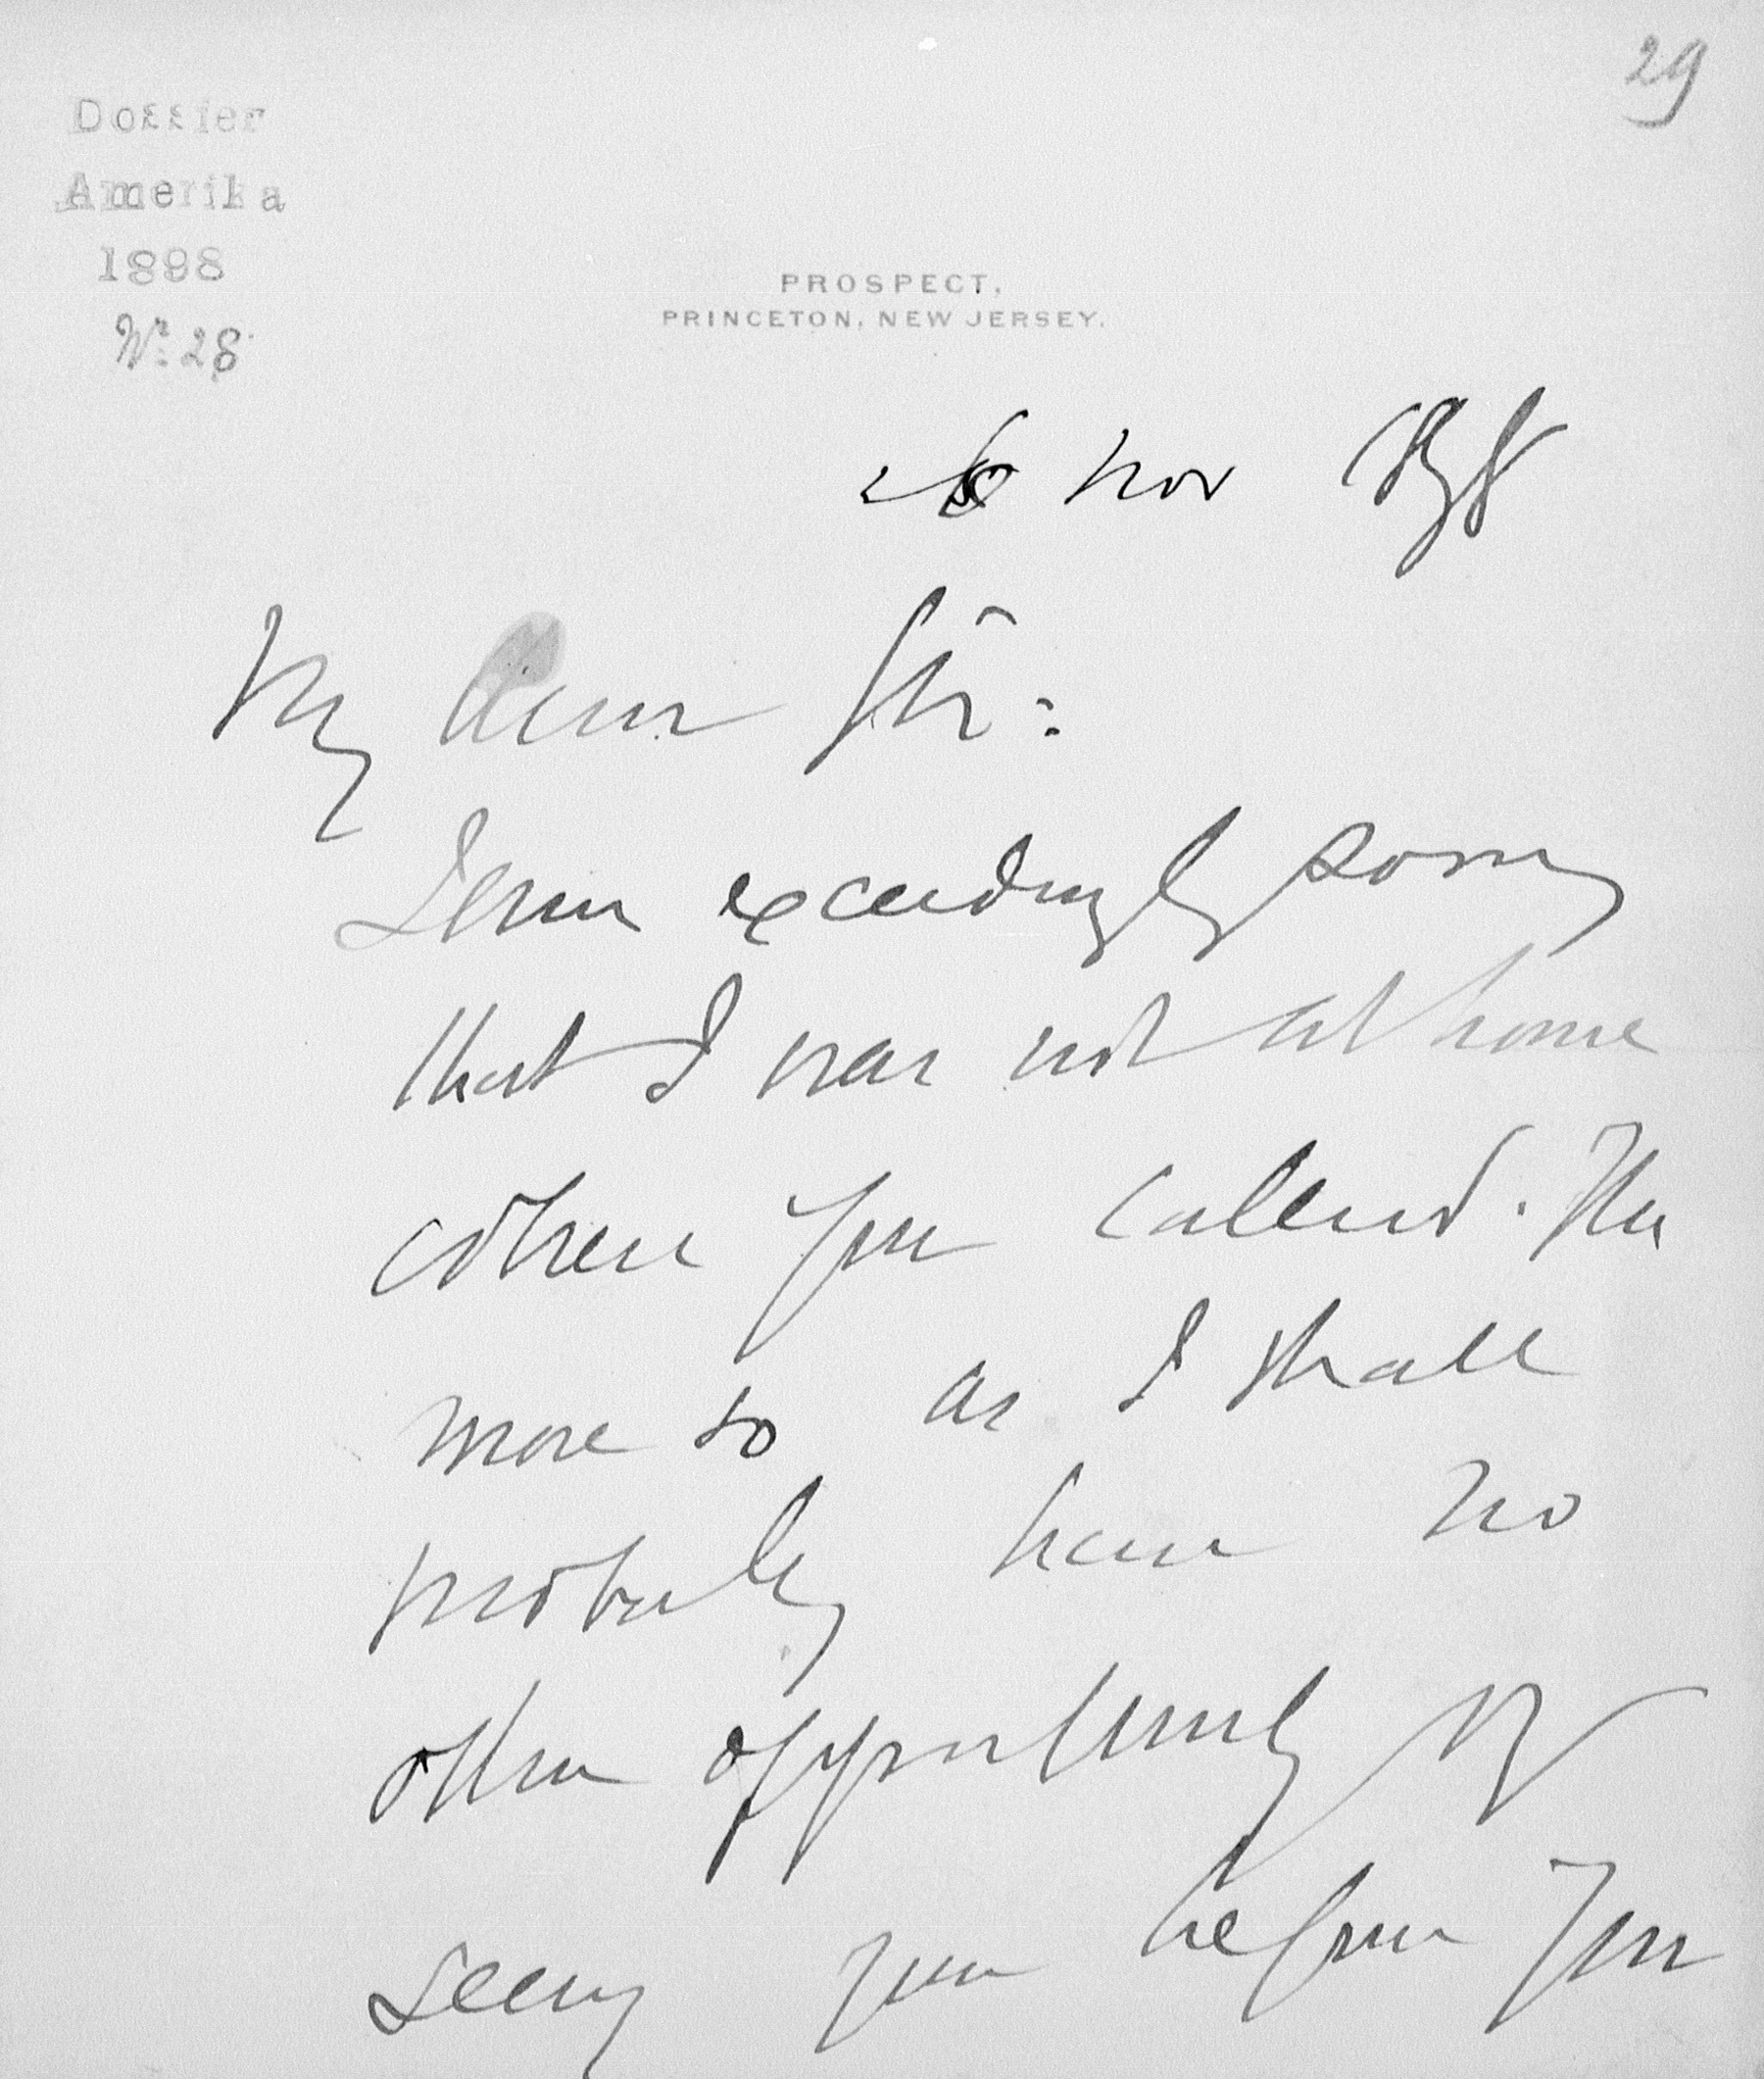 29
Dossier
Amerika
1898
No 28
PROSPECT,
PRINCETON, NEW JERSEY.
Nov 1898
My dear Sir:
I am exceedingly sorry
that I was not at home
when you called. The
more so as I shall
probably have no
other opportunity of
seeing you before you